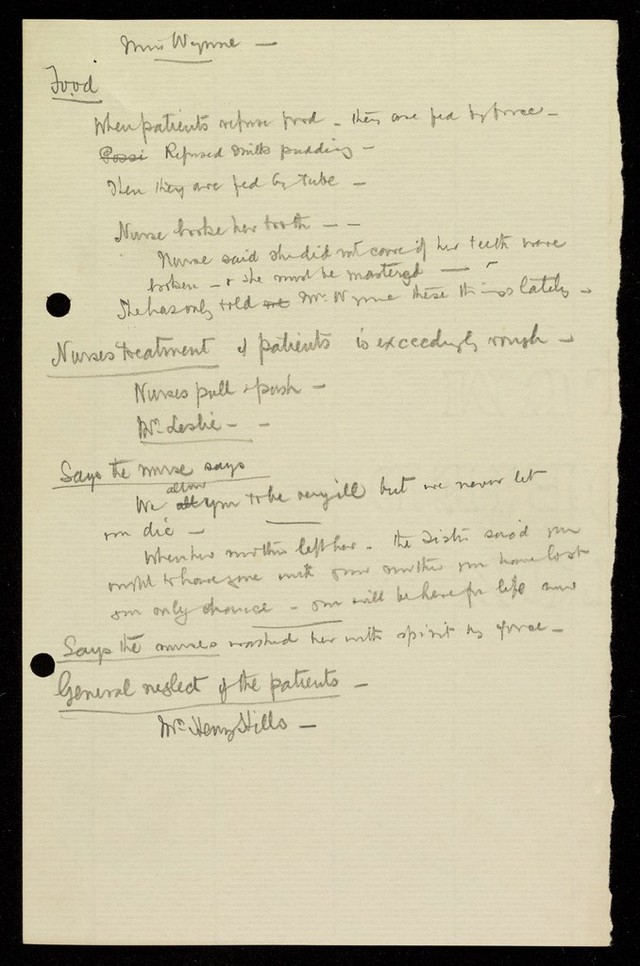 Miss Wynne —
Food
When patients refuse food - they are fed by force -
Possi Refused milk pudding -
Then they are fed by tube -
Nurse broke her tooth - -
Nurse said she did not care if her teeth were
broken - & she must be mastered -
She has only told me Mrs Wynne these things lately -
Nurses treatment of patients is exceedingly rough -
Nurses pull & push -
Mrs Leslie - -
Says the nurse says
We all allow you to be very ill but we never let
you die -
When her mother left her - the Sister said you
ought to have gone with your mother you have lost
your only chance - you will be here for life now
Says the nurses washed her with spirit by force -
General neglect of the patients -
Mrs Henry Hills -